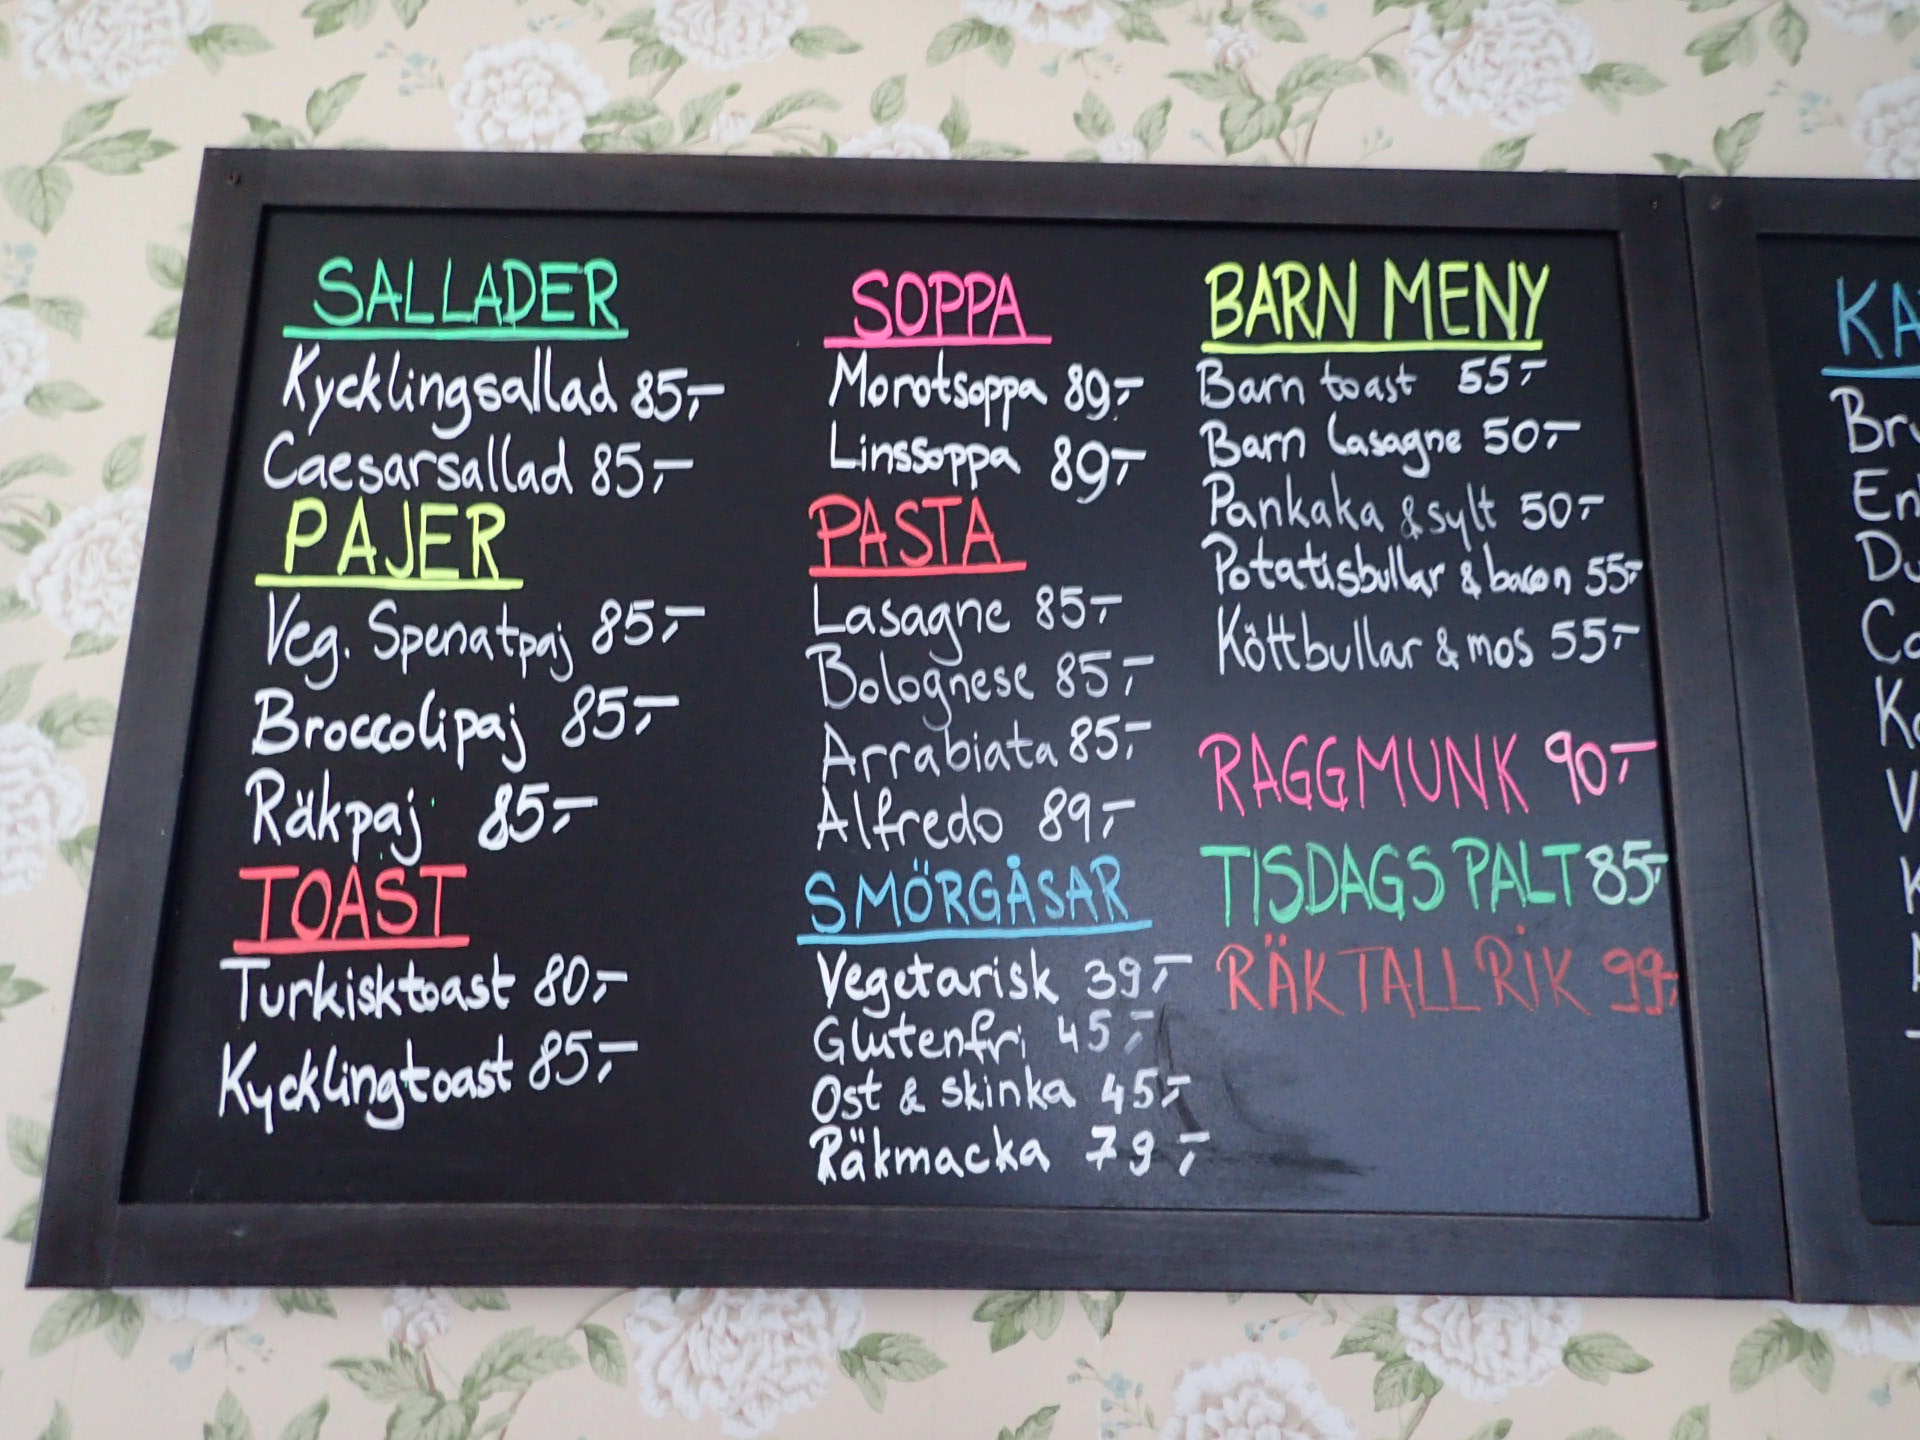 SALLADER
Kycklingsallad 85,-
Caesarsallad 85,-
PAJER
Veg. Spenatpaj 85,-
Broccolipaj 85,-
Räkpaj 85,-
TOAST
Turkisktoast 80,-
Kycklingtoast 85,-
SOPPA
Morotsoppa 89,-
Linssoppa 89,-
PASTA
Lasagne 85,-
Bolognese 85,-
Arrabiata 85,-
Alfredo 89,-
SMÖRGÅSAR
Vegetarisk 39,-
Glutenfri 45,-
Ost & skinka 45,-
Räkmacka 79,-
BARN MENY
Barn toast 55,-
Barn lasagne 50,-
Pankaka & sylt 50,-
Potatisbullar & bacon 55,-
Köttbullar & mos 55,-
RAGGMUNK 90,-
TISDAGS PALT 85,-
RÄKTALLRIK 99,-